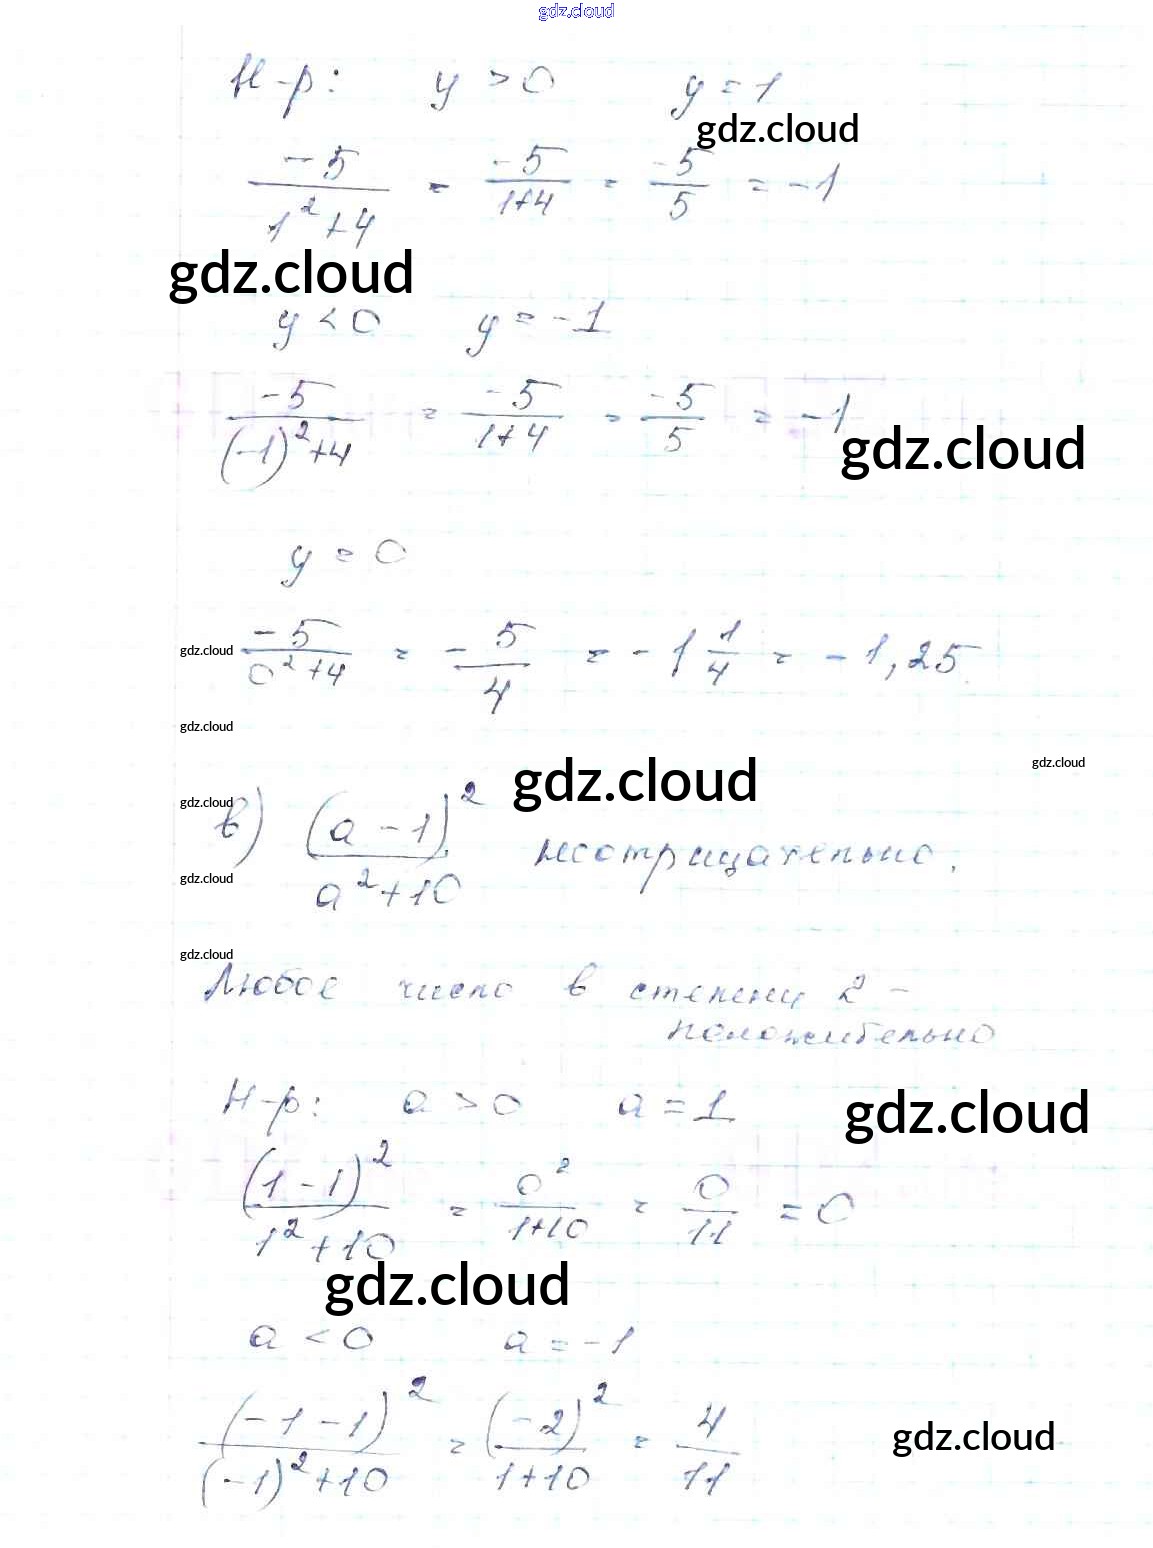 gdz.cloud
Н-р: y > 0 y = 1
gdz.cloud
-5/(1²+4) = -5/(1+4) = -5/5 = -1
gdz.cloud
y < 0 y = -1
-5/((-1)²+4) = -5/(1+4) = -5/5 = -1
gdz.cloud
y = 0
gdz.cloud
-5/(0²+4) = -5/4 = -1 1/4 = -1,25
gdz.cloud
gdz.cloud
gdz.cloud
gdz.cloud
в) (a-1)²/(a²+10) неотрицательно.
gdz.cloud
gdz.cloud
Любое число в степени 2 -
положительно
Н-р: a > 0 a = 1
gdz.cloud
(1-1)²/(1²+10) = 0²/(1+10) = 0/11 = 0
gdz.cloud
a < 0 a = -1
(-1-1)²/((-1)²+10) = (-2)²/(1+10) = 4/11
gdz.cloud